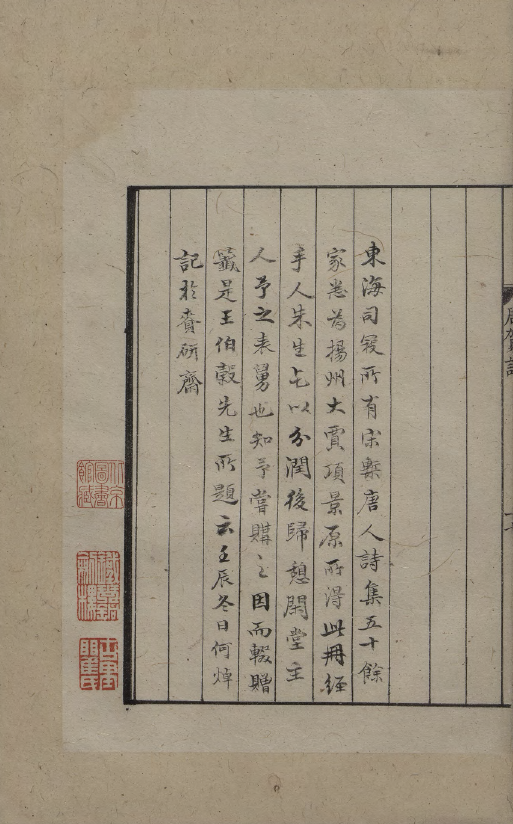 東海司寇所有宋槧唐人詩集五十餘
家悉爲揚州大賈項景原所得此冊經
手人朱生乞以分潤後歸憩閒堂主
人予之表舅也知予嘗購之因而輟贈
籖是王伯穀先生所題云壬辰冬日何焯
記於賚硏齋
周賀詩